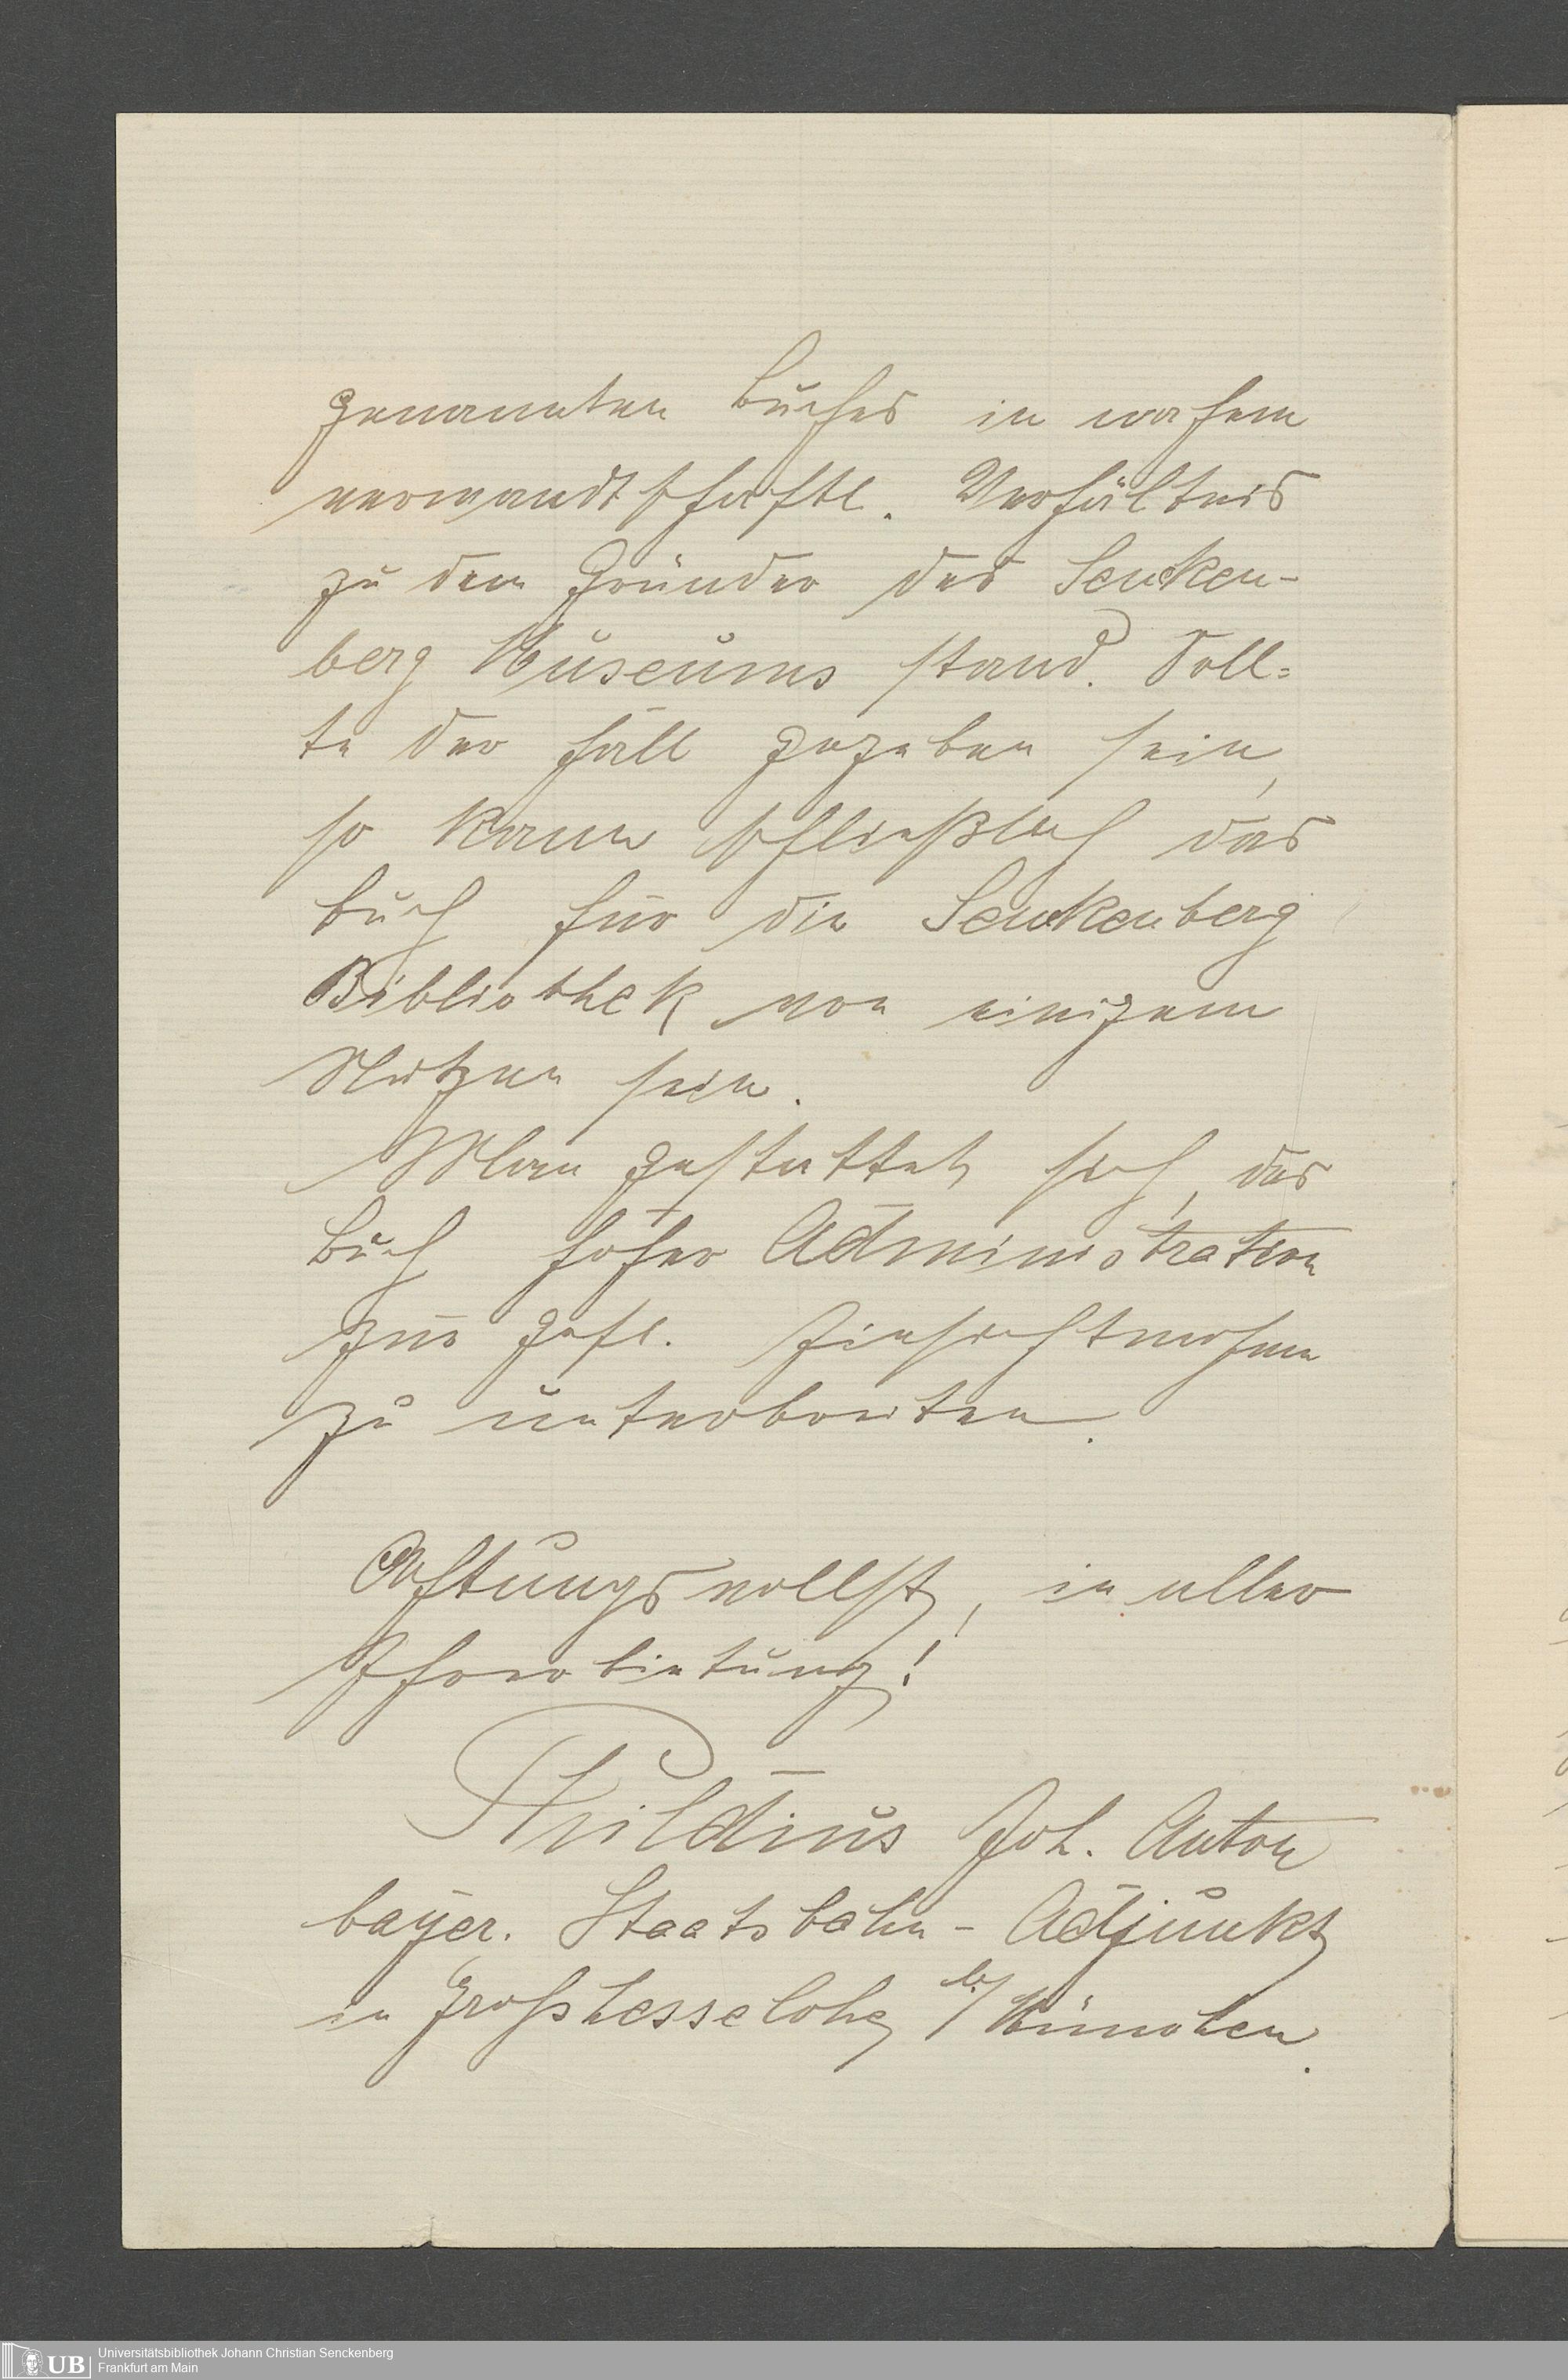 genannten Buches in nahem
verwandtschaftl. Verhältnis
zu dem Gründer des Senken-
berg Museums stand. Soll=
te der Fall gegeben sein,
so kann schließlich das
Buch für die Senkenberg
Bibliothek von einigem
Nutzen sein.
Man gestattet sich, das
Buch hoher Administration
zur gefl. Einsichtnahme
zu unterbreiten.
Achtungsvollst, in aller
Ehrerbietung!
Thildius Joh. Anton
bayer. Staatsbahn-Adjunkt
in Großhesselohe b/ München.
UB
Universitätsbibliothek Johann Christian Senckenberg
Frankfurt am Main